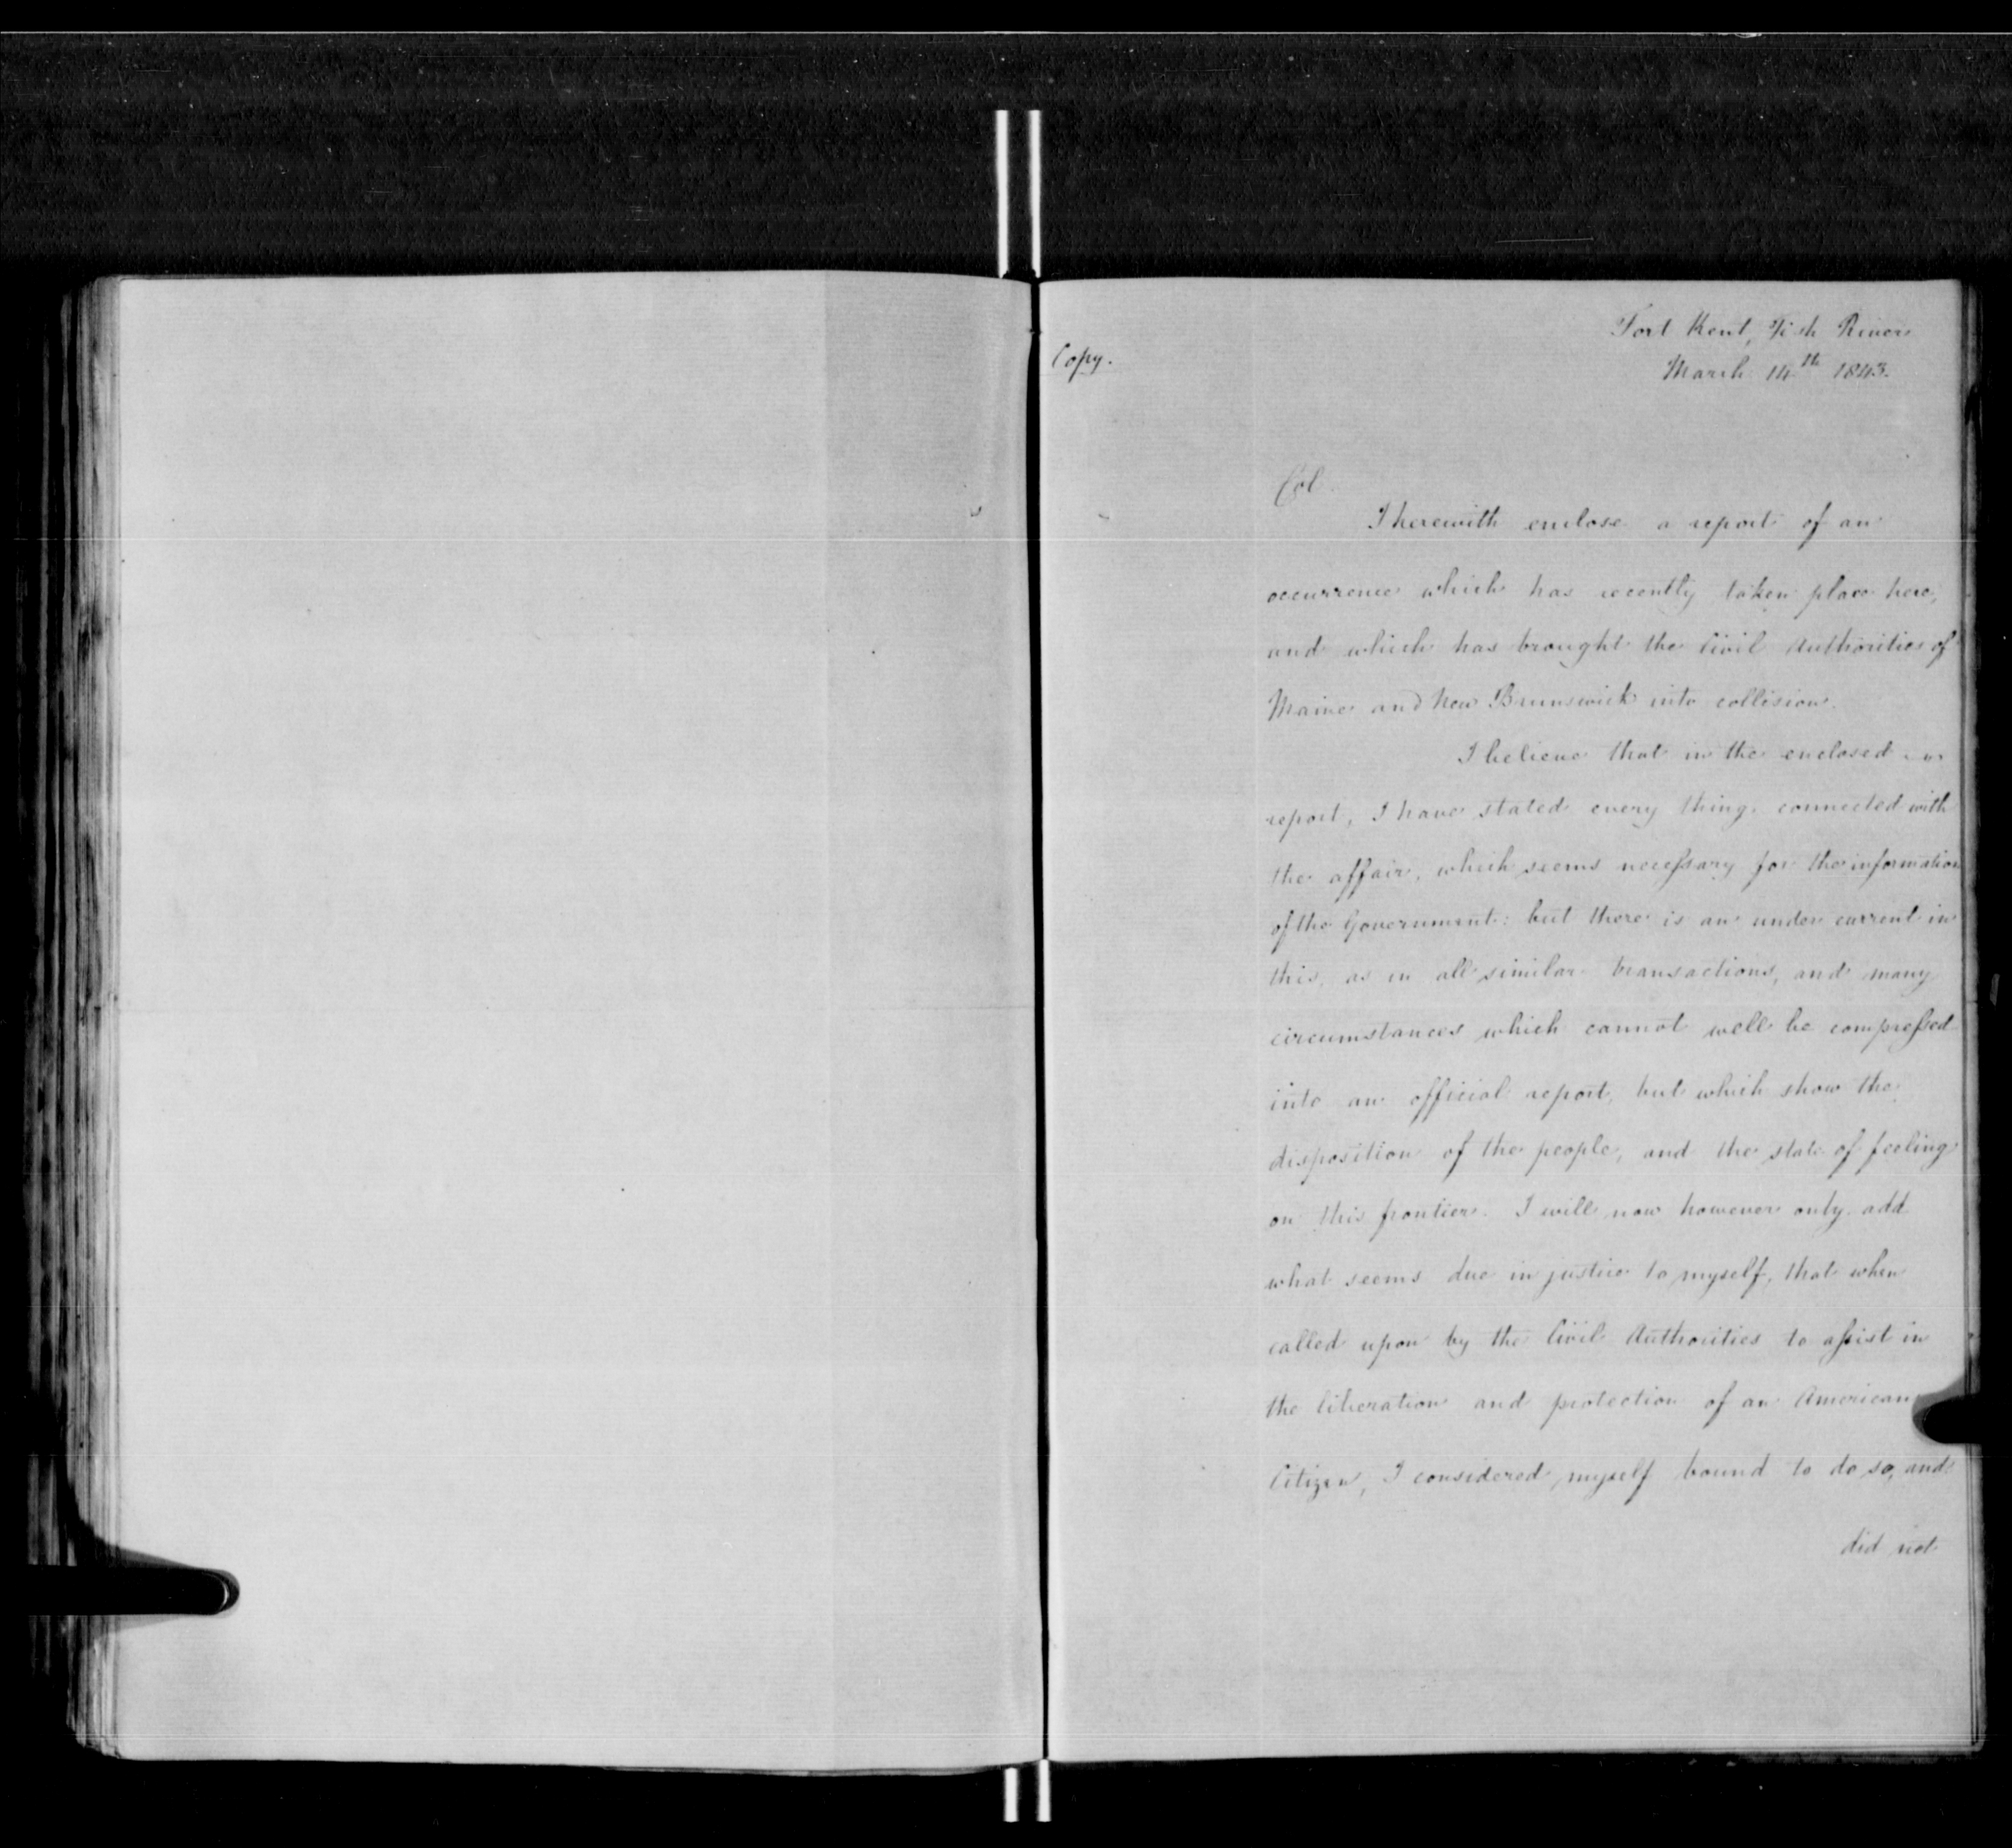 Fort Kent, Fish River
Copy.
March 14th 1843.
Col.
I herewith enclose a report of an
occurrence which has recently taken place here,
and which has brought the Civil Authorities of
Maine and New Brunswick into collision.
I believe that in the enclosed
report, I have stated every thing connected with
the affair, which seems necessary for the information
of the Government: but there is an under current in
this, as in all similar transactions, and many
circumstances which cannot well be compressed
into an official report, but which show the
disposition of the people, and the state of feeling
on this frontier. I will now however only add
what seems due in justice to myself, that when
called upon by the Civil Authorities to assist in
the liberation and protection of an American
Citizen, I considered myself bound to do so, and
did not